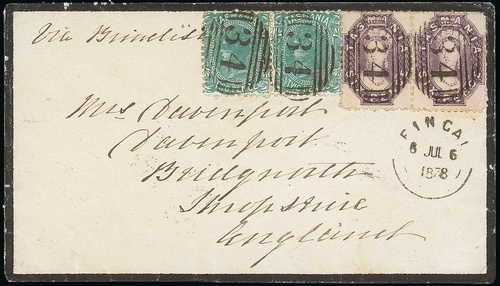 Via Brindisi
TASMANIA TASMANIA
34 34 34 34
Mrs Davenport
Davenport
Bridgnorth
Shropshire
England
FINGAL
6 JUL 6
1878